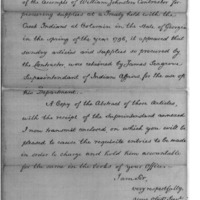 of the Accounts of William Johnston Contractor for
procuring supplies at a Treaty held with the
Creek Indians at Coleraine in the State of Georgia
in the spring of the year 1796, it appeared that
sundry articles and supplies so procured by
the Contractor, was returned by James Seagrove
Superintendant of Indian Affairs for the use of
the Department.
A Copy of the Abstract of those Articles,
with the receipt of the Superintendent annexed
I now transmit enclosed on which you will be
pleased to cause the requisite entries to be made
in order to charge and hold him accountable
for the same in the books of your Office.
I am Sir,
very respectfully,